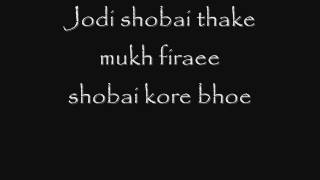 Jodi shobai thake
mukh firaee
shobai kore bhoe